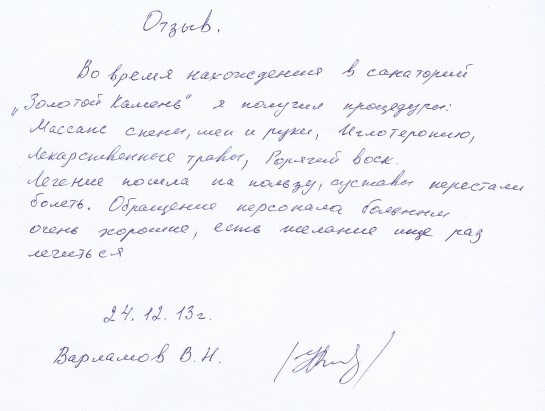 Отзыв.
Во время нахождения в санаторий
„Золотой Камень" я получил процедуры:
Массаж спены, шеи и руки, Иглотеропию,
лекарственные травы, Горячий воск.
Легение пошла на пользу, суставы перестали
болеть. Обращение персонала больным
очень хорошие, есть желание ище раз
лечиться
24.12.13г.
Варламов В.Н.